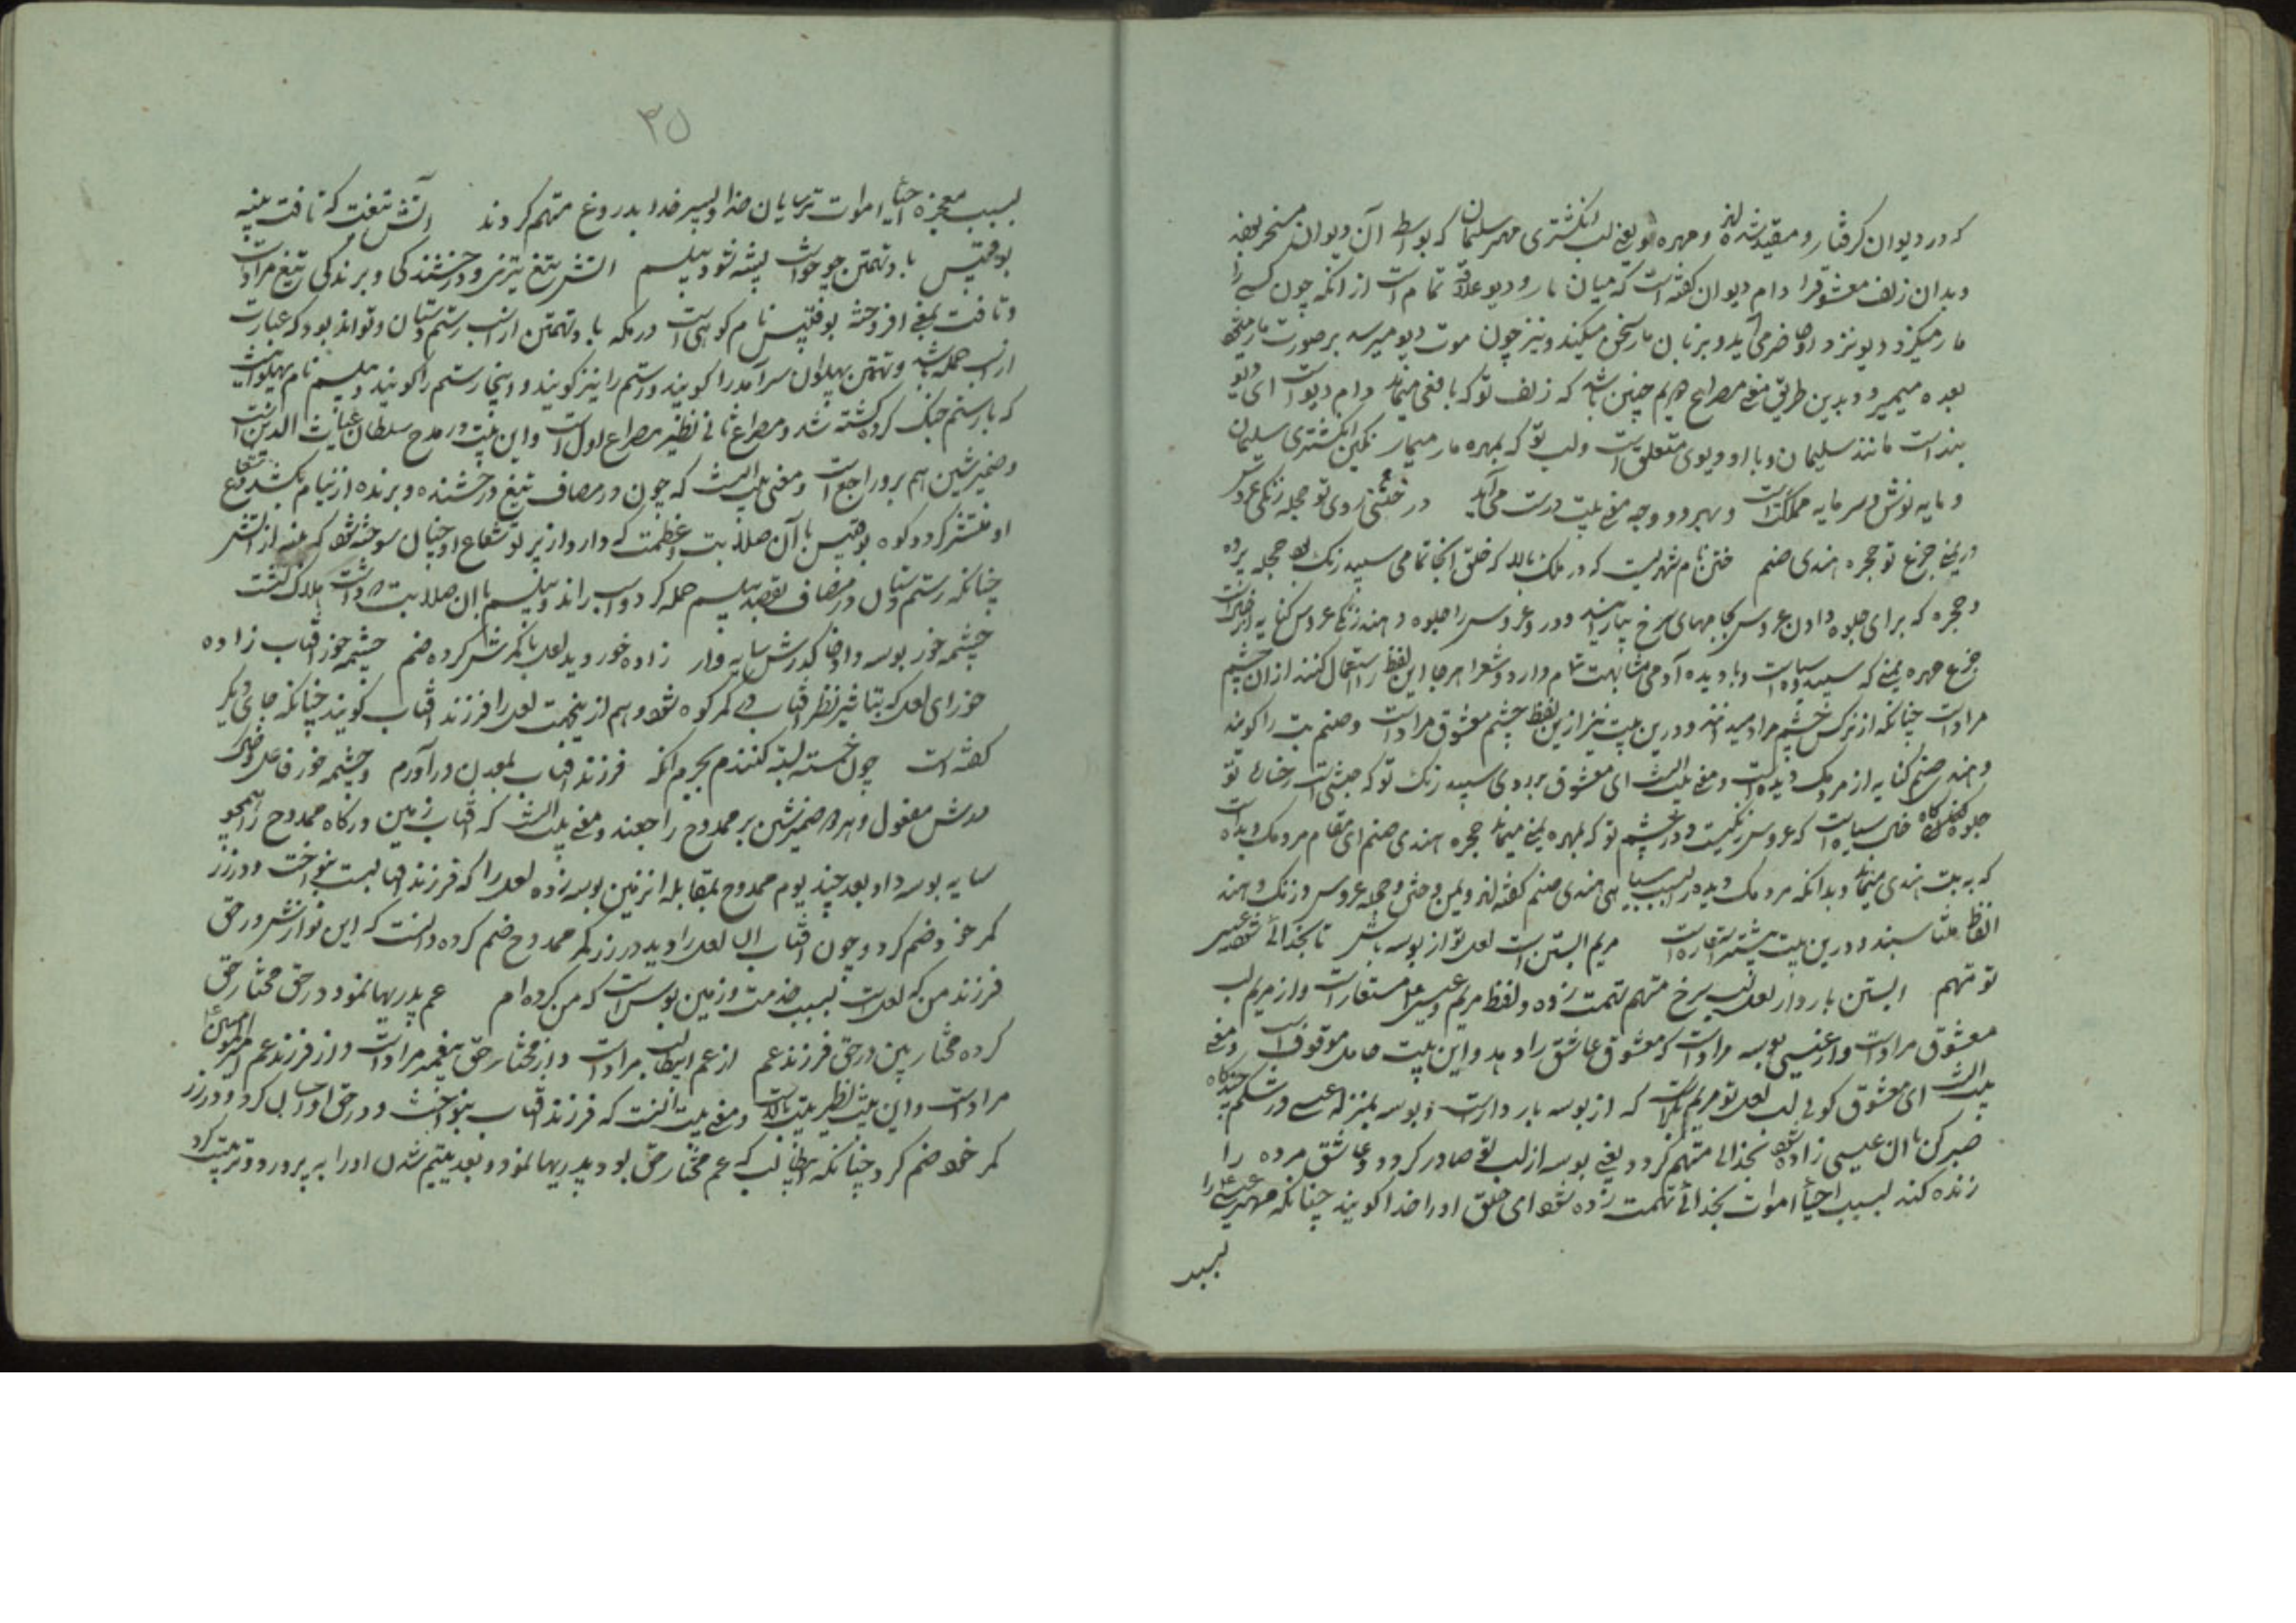 که در دیوان گرفتار و مقید شده‌اند و مهره او یعنی لب انگشتری مهر سلیمان که بواسطه آن دیوان مسخر بوده
و بدان زلف معشوق را دام دیوان گفته است که میان مار و دیو علاقه تمام است از آنکه چون کسی را
مار میگزد دیو نزد او حاضر می‌آید و بزبان مار سخن میکند و نیز چون موت دیو میرسد بر صورت مار
بعده میمیرد و بدین طریق معنی مصراع دویم چنین باشد که زلف تو که بافعی میماند دام دیو است ای دیو
بند است مانند سلیمان و با او دیوی متعلق است و لب تو که بمهره مار میماند نگین انگشتری سلیمان
و مایه نوش و سرمایه مملکت است و بهر دو وجه معنی بیت درست می‌آید در ختنی روی تو حجله زنگی عروس
در یمنی جزع تو حجره هندی صنم ختن نام شهریست که در ملک بالا که خلق آنجا تمامی سپید رنگ بود حجله پرده
و حجره که برای جلوه دادن عروس بجامهای سرخ بیارایند و درو عروس را جلوه دهند زنگی عروس کنایه از خال است
جزع مهره یمنی که سپید و سیاه است و با دیده آدمی مشابهت تام دارد و شعرا هر جا این لفظ را استعمال کنند از آن چشم
مراد است چنانکه از نرگس چشم مراد میدارند و درین بیت نیز ازین لفظ چشم معشوق مراد است و صنم بت را گویند
و هندی صنم کنایه از مردمک دیده است و معنی بیت آنست ای معشوق بر روی سپید رنگ تو که ختنی است رخساره تو
جلوه گاه خال سیاه است که عروس زنگیست و در چشم تو که بمهره یمنی میماند حجره هندی صنم ای مقام مردمک دیده است
که به بت هندی میماند و بدانکه مردمک دیده را بسبب سیاهی هندی صنم گفته‌اند و یمن و ختن و حجله عروس و زنگ و هند
الفاظ متناسبند و درین بیت بیشتر استعاره است مریم آبستن است لعل تو از بوسه باش تا بخدائی شود عیسی
تو متهم آبستن باردار لعل لب سرخ متهم تهمت زده و لفظ مریم و عیسی مستعار است و از مریم لب
معشوق مراد است و از عیسی بوسه مراد است که معشوق عاشق را دهد و این بیت حامل موقوف است و معنی
بیت آنست ای معشوق گوئی لب لعل تو مریم است که از بوسه باردار است و بوسه بمنزله عیسی در شکم چندگاه
صبر کن تا آن عیسی زاده شود بخدائی متهم گردد یعنی بوسه از لب تو صادر گردد و عاشق مرده را
زنده کند بسبب احیا اموات بخدائی تهمت زده شود ای خلق او را خدا گویند چنانکه مهتر عیسی را
بسبب
۳۵
بسبب معجزه احیا اموات ترسایان خدا و پسر خدا بدروغ متهم کردند آتش تیغت که تافت پنبه
بوقبیس باد تهمتن چو خواست پشه شود پیلسم آتش تیغ تیزی و درخشندگی و برندگی تیغ مراد است
و تافت بمعنی افروخته بوقبیس نام کوهی است در مکه باد تهمتن از اسب رستم دستان و تواند بود که عبارت
از اسب حمله باشد و تهمتن پهلوان سرآمد را گویند و رستم را نیز گویند و اینجا رستم را گویند پیلسم نام پهلوانیست
که با رستم جنگ کرده کشته شد و مصراع ثانی نظیر مصراع اول است و این بیت در مدح سلطان غیاث الدین است
و ضمیر شین هم برو راجع است و معنی بیت آنست که چون در مصاف تیغ درخشنده و برنده از نیام بکشد شعاع
او منتشر گردد کوه بوقبیس با آن صلابت و عظمت که دارد از پرتو شعاع او چنان سوخته شود که پنبه از آتش
چنانکه رستم دستان در مصاف بقصد پیلسم حمله کرد و اسب راند و پیلسم با آن صلابت که داشت هلاک گشت
چشمه خور بوسه داد خاک درش سایه وار زاده خور دید لعل با کمرش کرده ضم چشمه خور آفتاب زاده
خور ای لعل که بتاثیر نظر آفتاب در کمر کوه شود و هم ازینجهت لعل را فرزند آفتاب گویند چنانکه جای دیگر
گفته است چون خسته لبته کنندم بجرم آنکه فرزند آفتاب بمعدن درآورم و چشمه خور فاعل و خاک
درش مفعول و هر دو ضمیر شین بر ممدوح راجعند و معنی بیت آنست که آفتاب زمین درگاه ممدوح را همچو
سایه بوسه داد بعد چند یوم ممدوح بمقابله آن زمین بوسه زده لعل را که فرزند آفتابست بنواخت و در زر
کمر خود ضم کرد و چون آفتاب آن لعل را دید در زر کمر ممدوح ضم کرده دانست که این نوازش در حق
فرزند من که لعل است بسبب خدمت و زمین بوس است که من کرده‌ام عم پدریها نمود در حق مختار حق
کرده مختار بین در حق فرزند عم از عم ابوطالب مراد است و از مختار حق پیغمبر مراد است و از فرزند عم امیر المومنین
مراد است و این بیت نظیر بیت بالاست و معنی بیت آنست که فرزند آفتاب بنواخت و در حق او احسان کرد و در زر
کمر خود ضم کرد چنانکه ابوطالب که عم مختار حق بود پدریها نمود و بعد یتیم شدن او را به پرورد و تربیت کرد